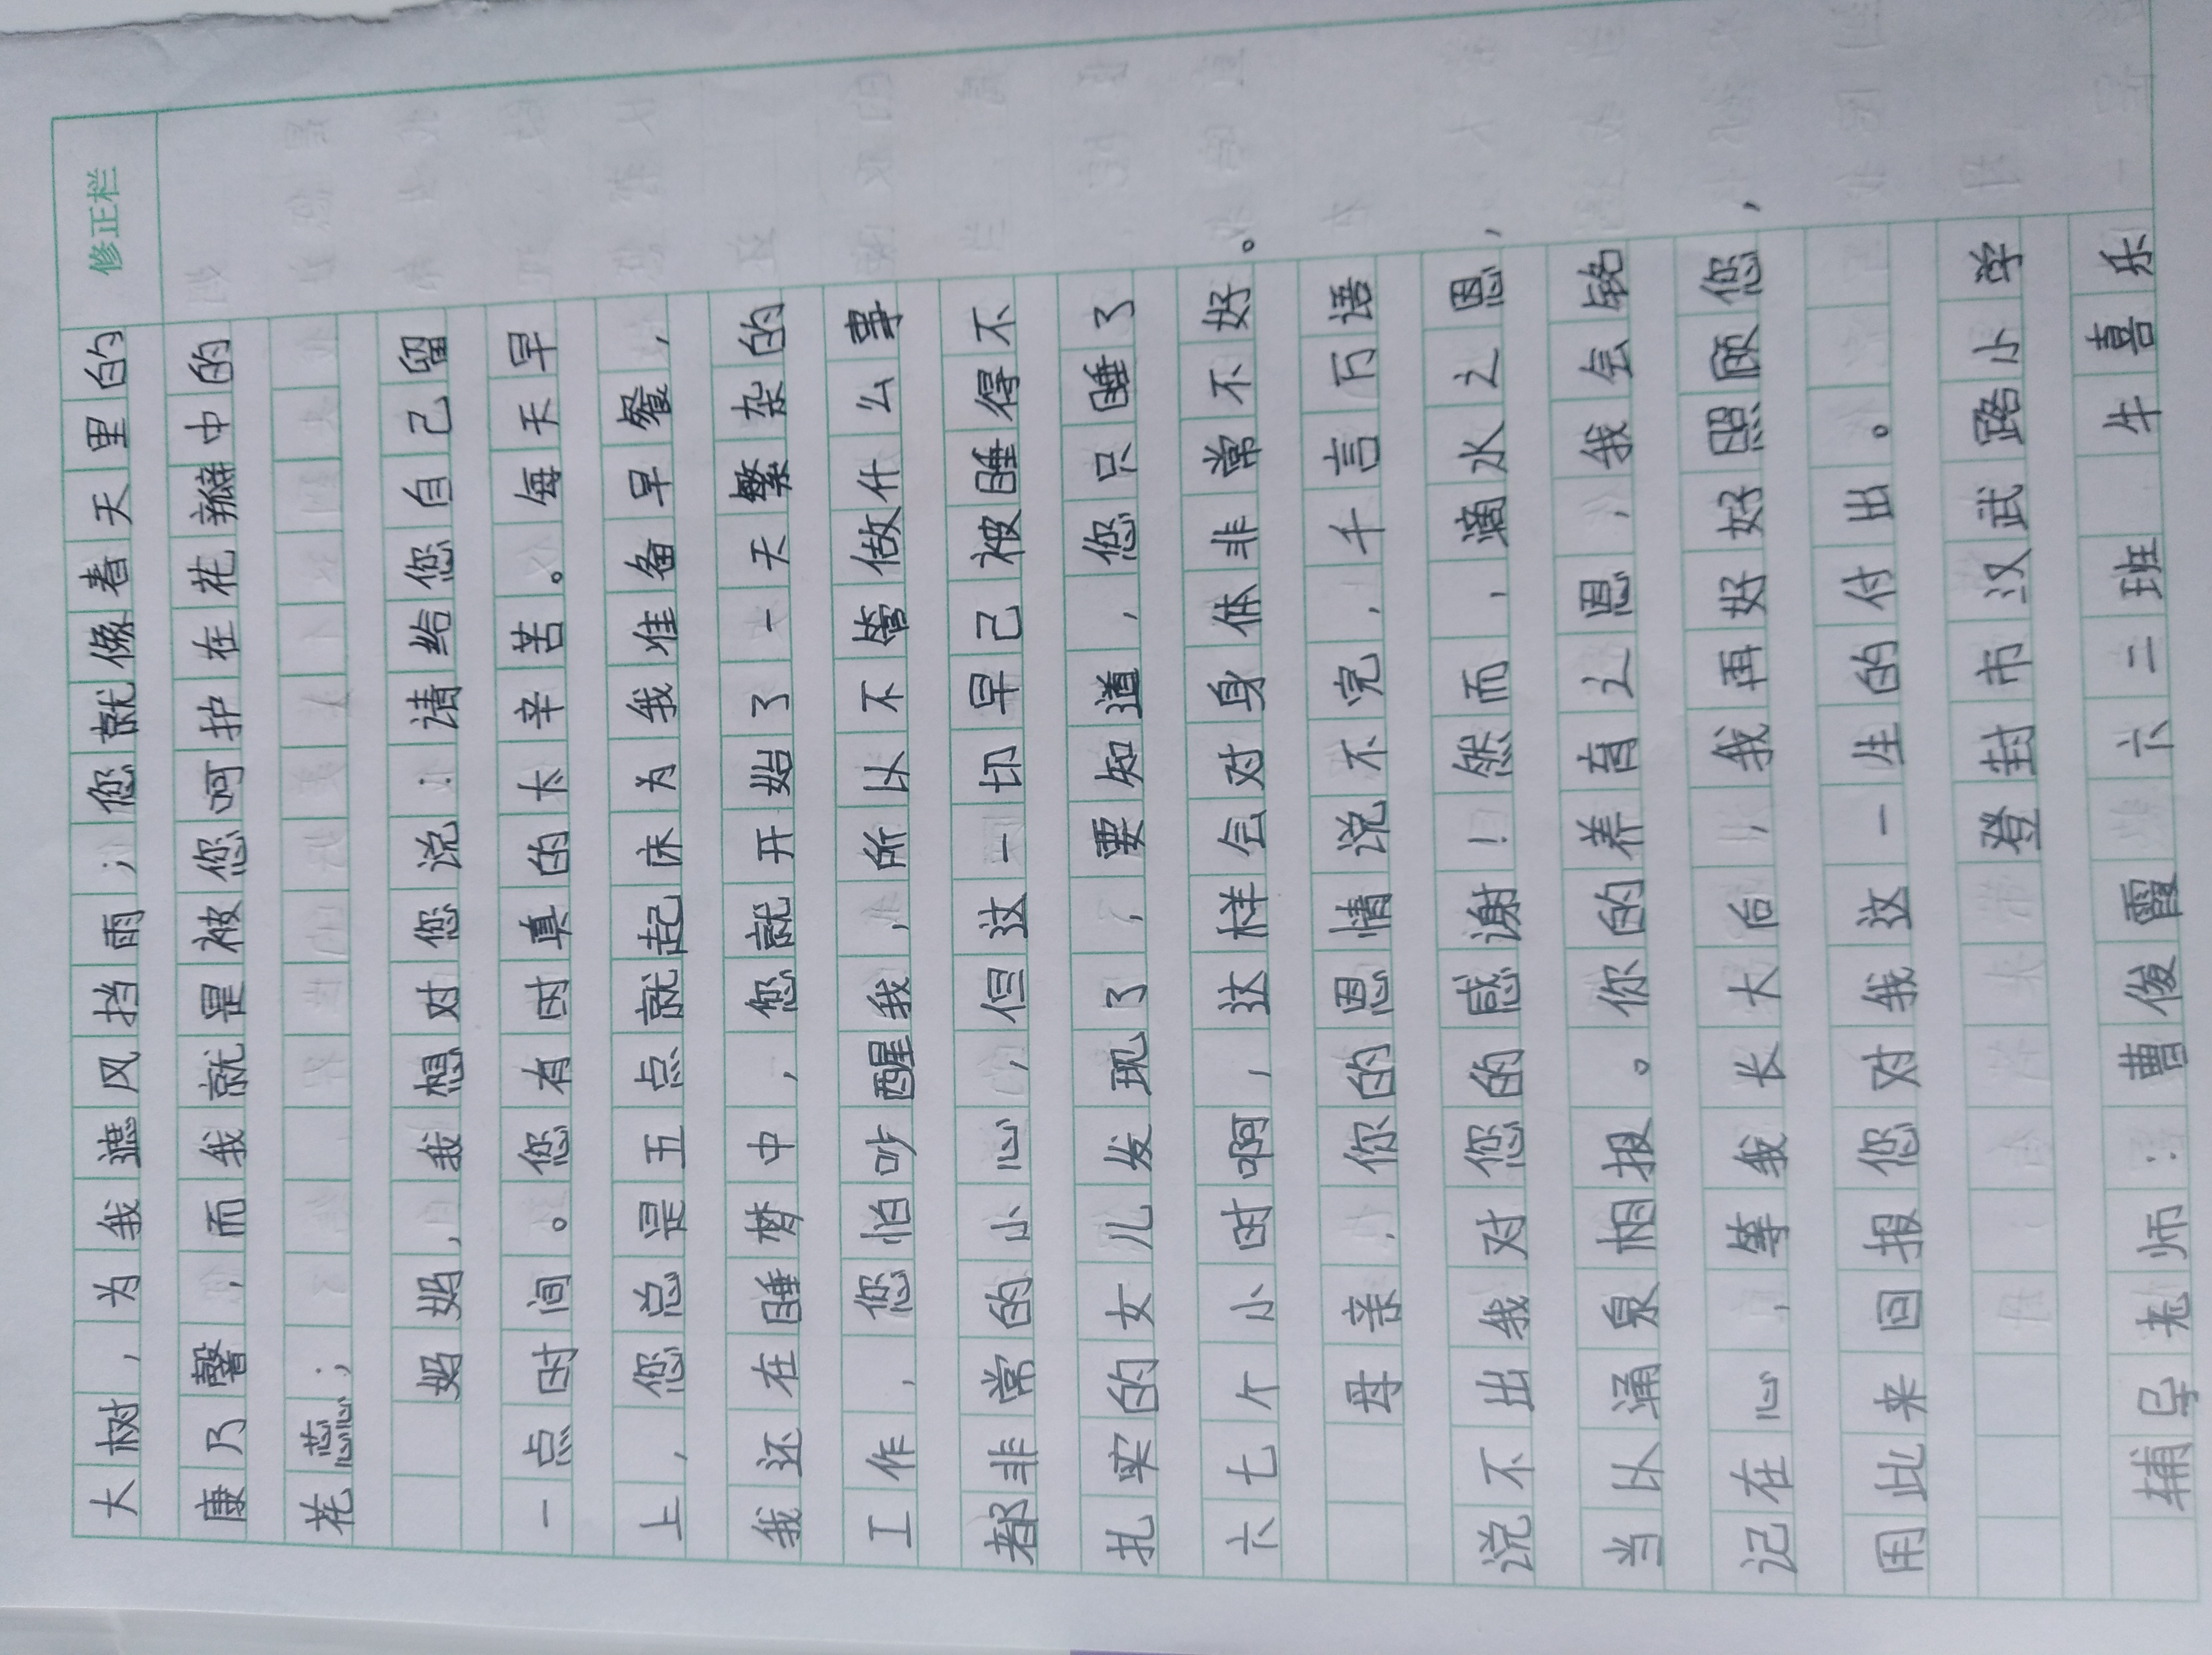 修正栏
大树，为我遮风挡雨；您就像春天里的
康乃馨，而我就是被您呵护在花瓣中的
花蕊；
妈妈，我想对您说：请给您自己留
一点时间。您有时真的太辛苦。每天早
上，您总是五点就起床为我准备早餐，
我还在睡梦中，您就开始了一天繁杂的
工作，您怕吵醒我，所以不管做什么事
都非常的小心，但这一切早已被睡得不
扎实的女儿发现了，要知道，您只睡了
六七个小时啊，这样会对身体非常不好。
母亲，你的恩情说不完，千言万语
说不出我对您的感谢！然而，滴水之恩，
当以涌泉相报。你的养育之恩，我会铭
记在心，等我长大后，我再好好照顾您，
用此来回报您对我这一生的付出。
登封市汉武路小学
辅导老师：曹俊霞 六二班 牛喜乐